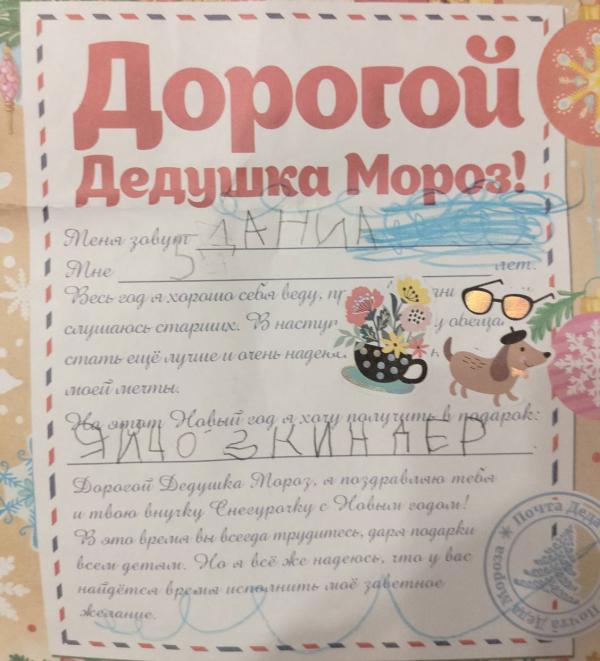 Дорогой
Дедушка Мороз!
Меня зовут ДАНИА
Мне 5 лет.
Весь год я хорошо себя веду,
слушаюсь старших. В
стать ещё лучше и очень
моей мечты.
На этот Новый год я хочу получить в подарок:
ЯЙЦО З КИНДЕР
Дорогой Дедушка Мороз, я поздравляю тебя
и твою внучку Снегурочку с Новым годом!
В это время вы всегда трудитесь, даря подарки
всем детям. Но я всё же надеюсь, что у вас
найдётся время исполнить моё заветное
желание.
Почта Деда Мороза * Почта Деда